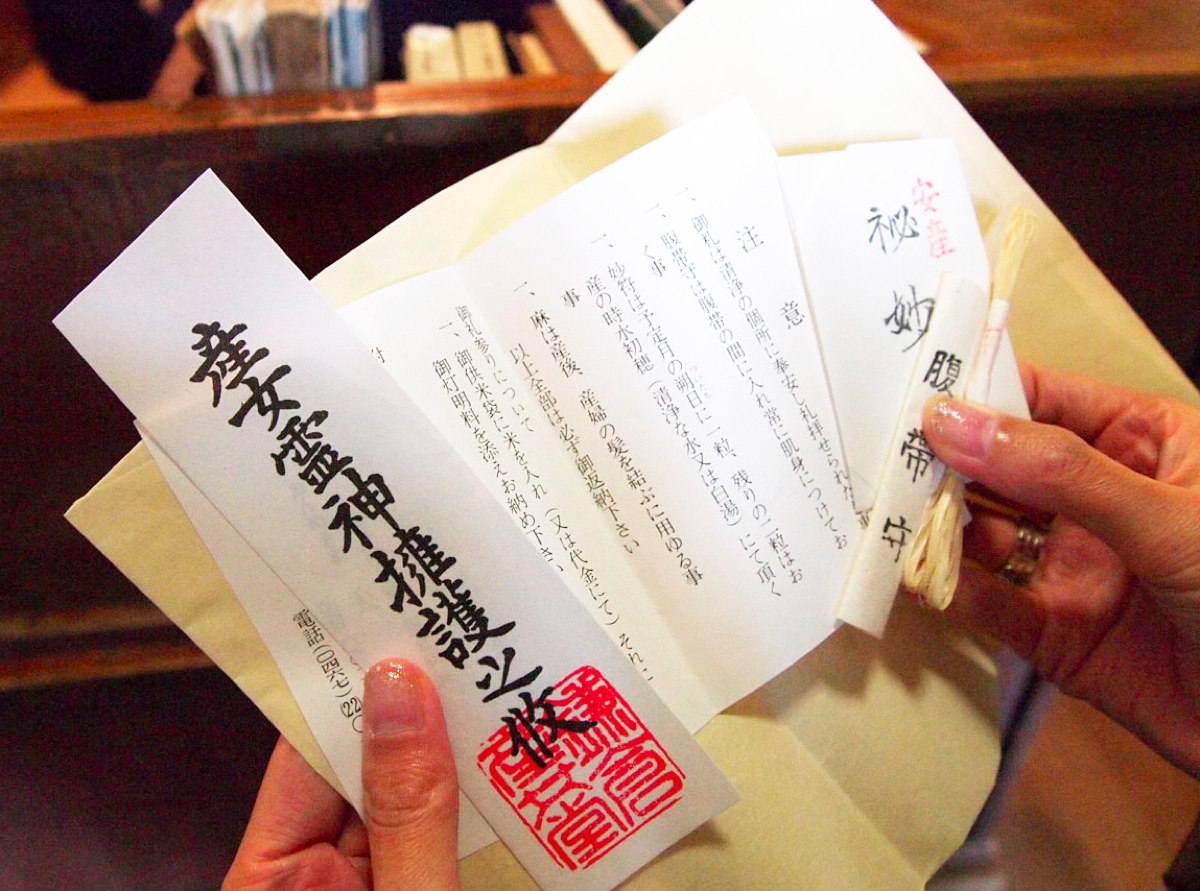 安産
祕妙
腹
注意
一、御札は清浄の個所に奉安し礼拝せられたき事
一、腹帯守は腹帯の間に入れ常に肌身につけてお
く事
一、妙符は予定月の明日に一粒、残りの一粒はお
産の時水初穂(清浄な水又は白湯)にて頂く
事
一、麻は産後、産婦の髪を結ぶに用ゆる事
以上全部は必ず御返納下さい
御札参りについて
一、御供米袋に米を入れ(又は代金にて)それに
御灯明料を添えお納め下さい
電話(〇四六七)(22)〇
産女霊神擁護之攸
鎌倉
産女堂